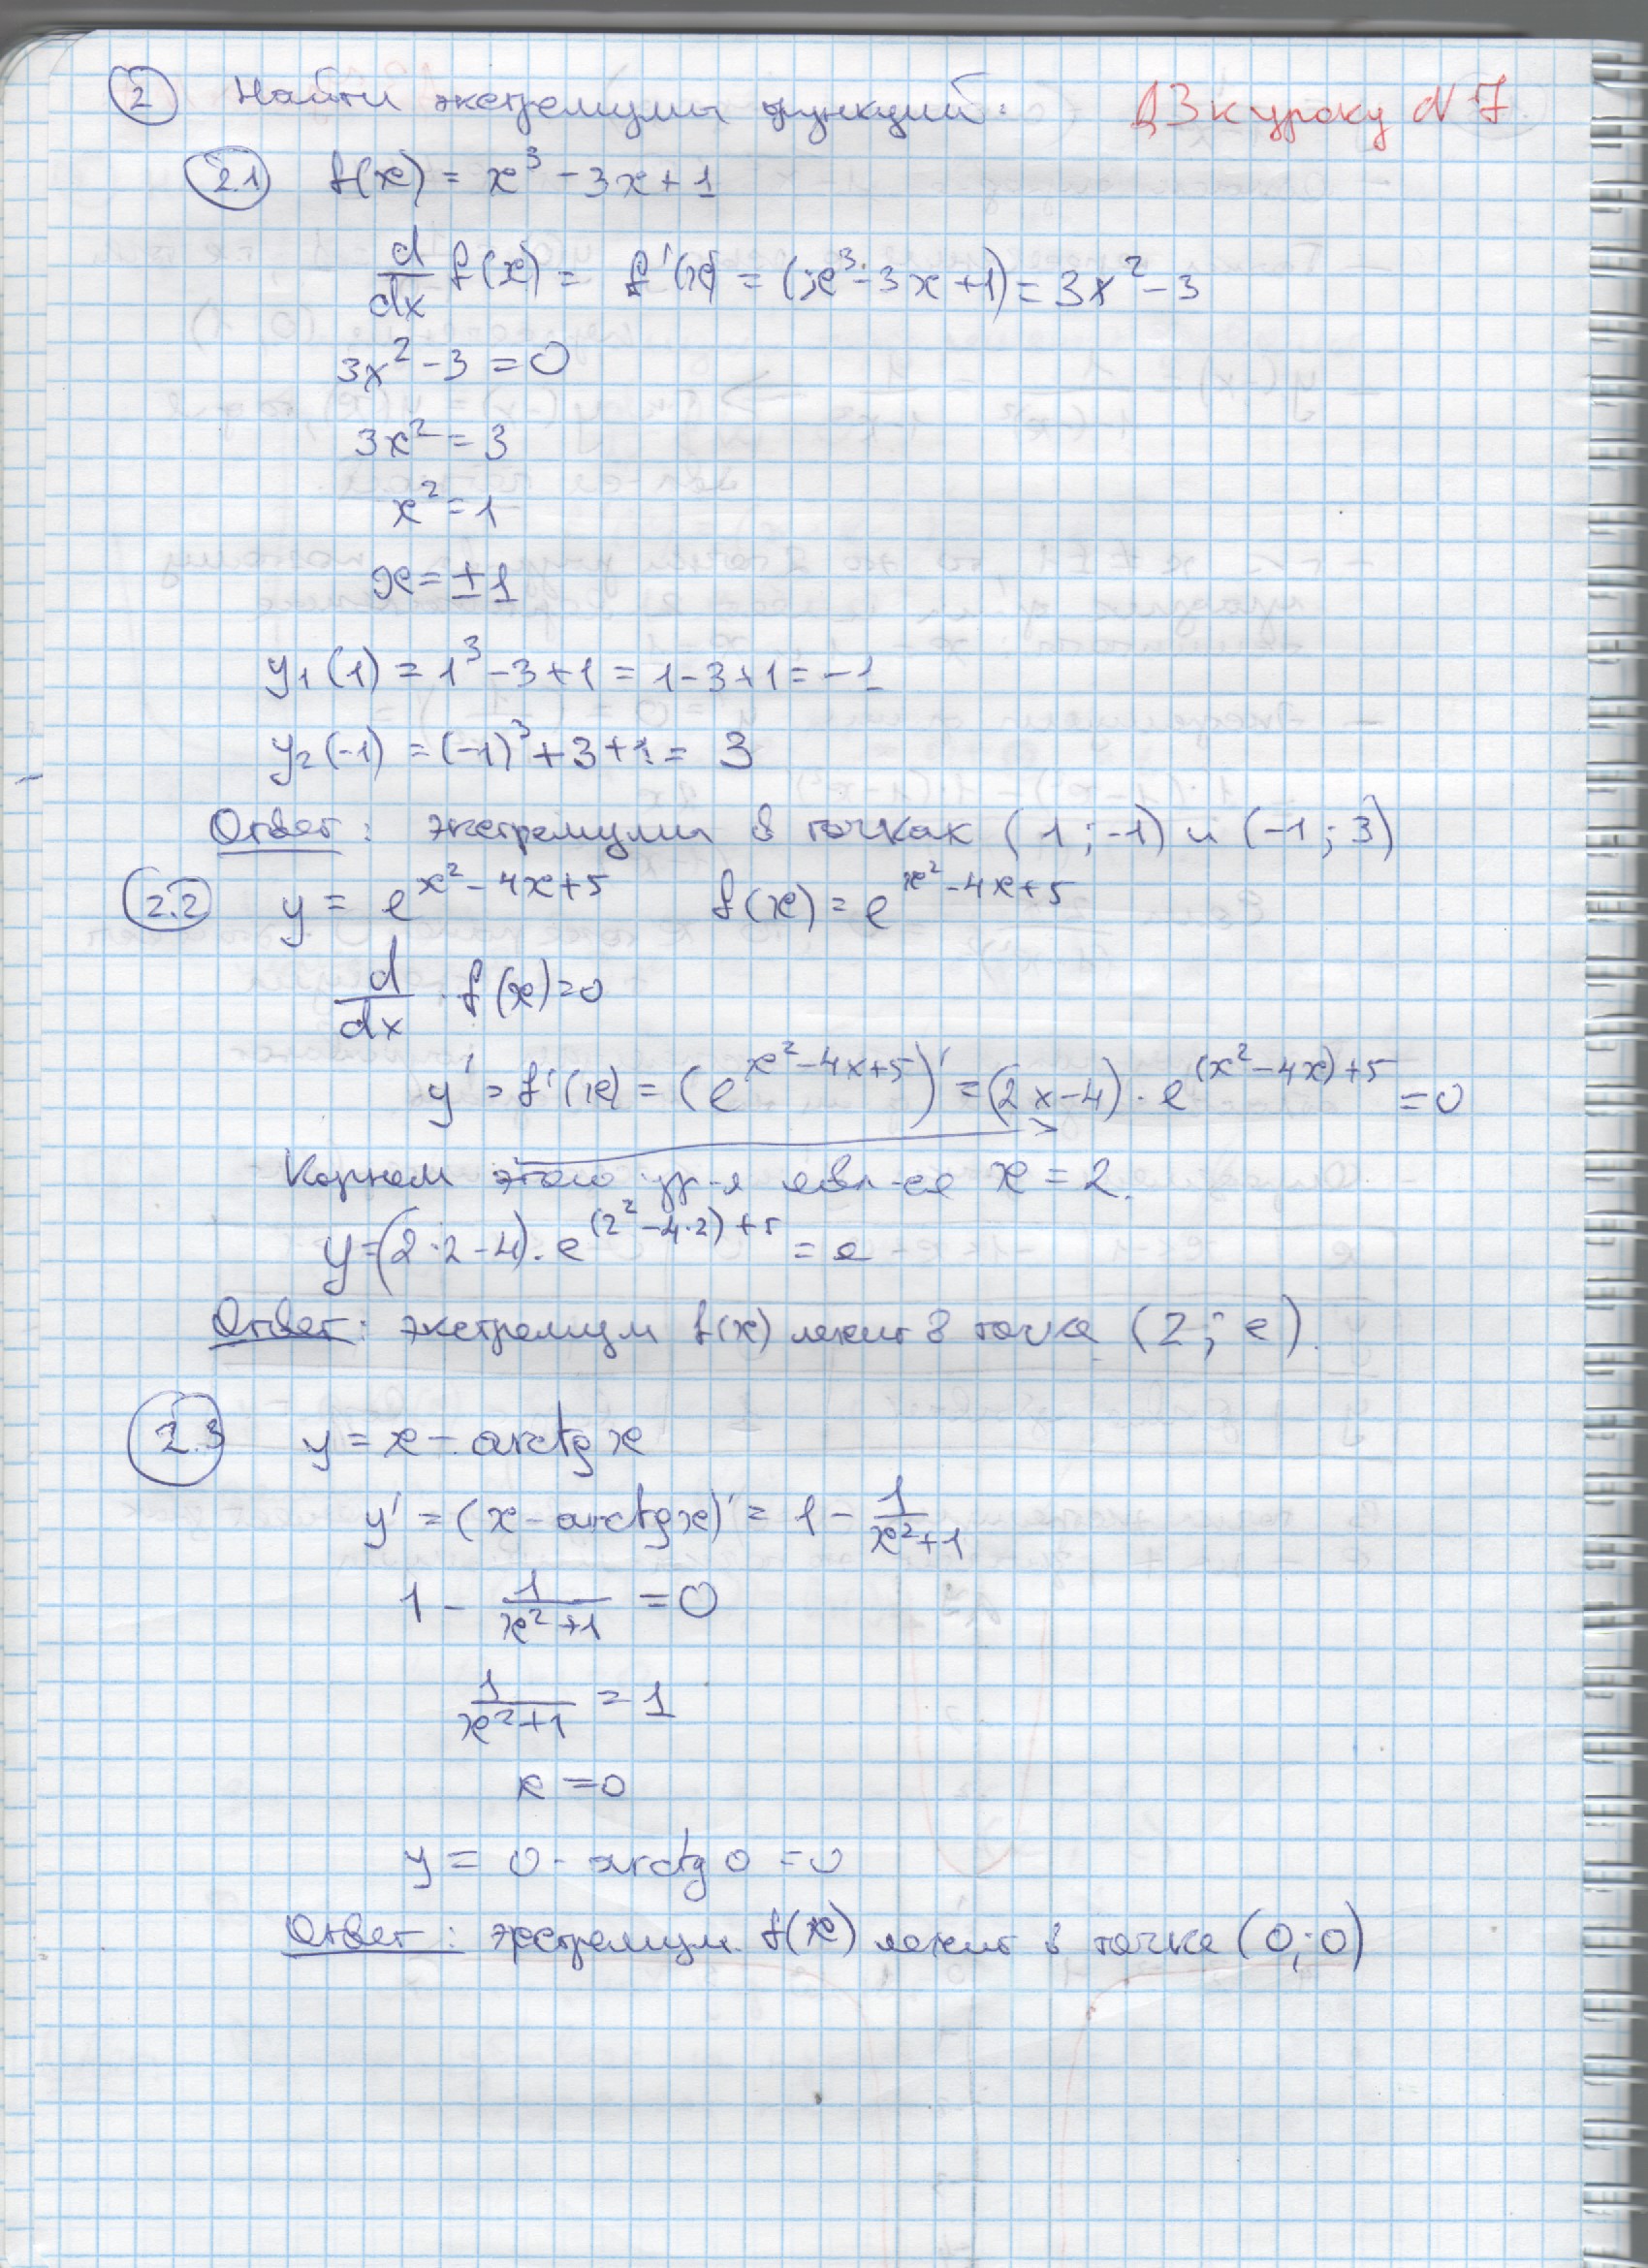 2 Найти экстремумы функций: ДЗ к уроку N 7
2.1 f(x) = x³ - 3x + 1
d/dx f(x) = f'(x) = (x³ - 3x + 1) = 3x² - 3
3x² - 3 = 0
3x² = 3
x² = 1
x = ±1
y₁(1) = 1³ - 3 + 1 = 1 - 3 + 1 = -1
y₂(-1) = (-1)³ + 3 + 1 = 3
Ответ: экстремумы в точках (1; -1) и (-1; 3)
2.2 y = e^(x² - 4x + 5) f(x) = e^(x² - 4x + 5)
d/dx · f(x) = 0
y' = f'(x) = (e^(x² - 4x + 5))' = (2x - 4) · e^((x² - 4x) + 5) = 0
Корнем этого ур-я явл-ся x = 2.
y = (2·2 - 4) · e^((2² - 4·2) + 5) = e
Ответ: экстремум f(x) лежит в точке (2; e).
2.3 y = x - arctg x
y' = (x - arctg x)' = 1 - 1/(x² + 1)
1 - 1/(x² + 1) = 0
1/(x² + 1) = 1
x = 0
y = 0 - arctg 0 = 0
Ответ: экстремум f(x) лежит в точке (0; 0)